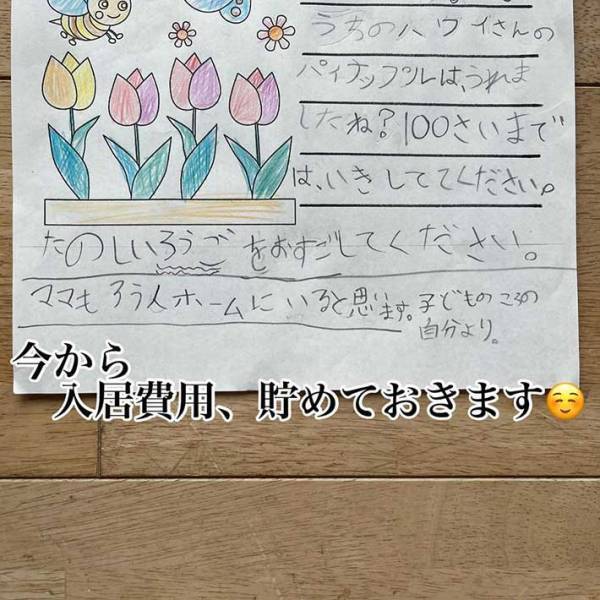 うちのハワイさんの
パイナップルは、うれま
したね？100さいまで
は、いきしててください。
たのしいろうごをおすごしてください。
ママもろう人ホームにいると思います。子どものころの
自分より。
今から
入居費用、貯めておきます☺️